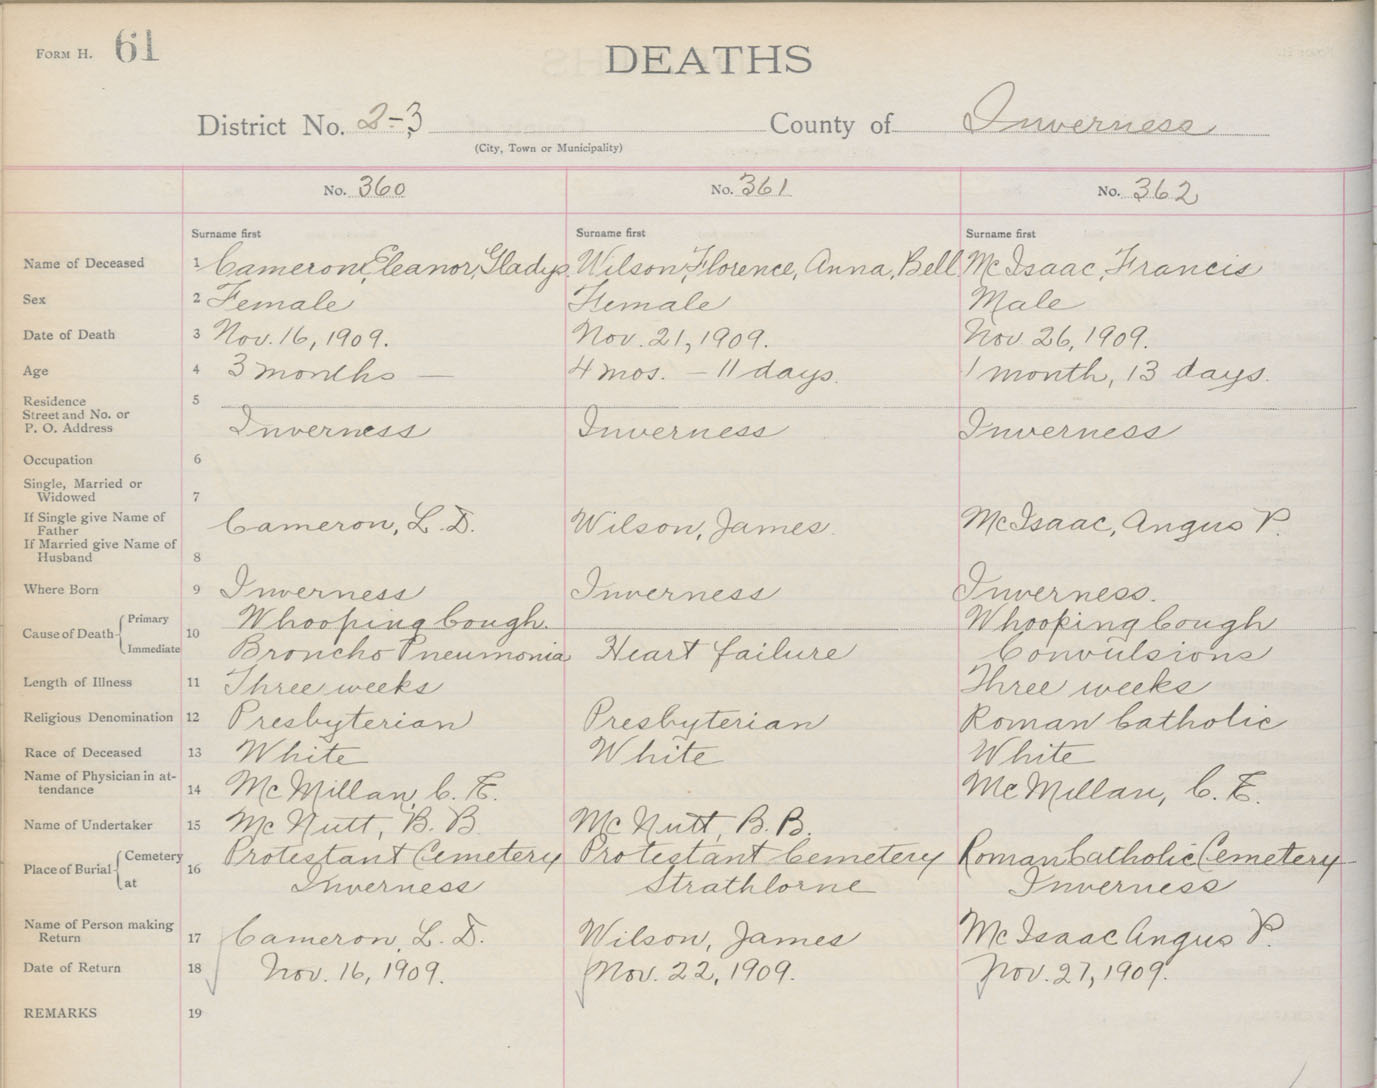 FORM H. 61
DEATHS
District No. 2-3 County of Inverness
(City, Town or Municipality)
No. 360 No. 361 No. 362
Surname first Surname first Surname first
Name of Deceased 1 Cameron, Eleanor, Gladys. Wilson, Florence, Anna, Bell McIsaac, Francis
Sex 2 Female Female Male
Date of Death 3 Nov. 16, 1909. Nov. 21, 1909. Nov 26, 1909.
Age 4 3 months — 4 mos. - 11 days. 1 month, 13 days.
Residence 5
Street and No. or
P. O. Address Inverness Inverness Inverness
Occupation 6
Single, Married or
Widowed 7
If Single give Name of
Father Cameron, L. D. Wilson, James. McIsaac, Angus P.
If Married give Name of
Husband 8
Where Born 9 Inverness Inverness Inverness.
Cause of Death Primary 10 Whooping Cough. Whooping Cough
Immediate Broncho Pneumonia Heart failure Convulsions
Length of Illness 11 Three weeks Three weeks
Religious Denomination 12 Presbyterian Presbyterian Roman Catholic
Race of Deceased 13 White White White
Name of Physician in at-
tendance 14 McMillan, C. E. McMillan, C. E.
Name of Undertaker 15 McNutt, B. B. McNutt, B. B.
Place of Burial Cemetery 16 Protestant Cemetery Protestant Cemetery Roman Catholic Cemetery
at Inverness Strathlorne Inverness
Name of Person making
Return 17 Cameron, L. D. Wilson, James McIsaac Angus P.
Date of Return 18 Nov. 16, 1909. Nov. 22, 1909. Nov. 27, 1909.
REMARKS 19